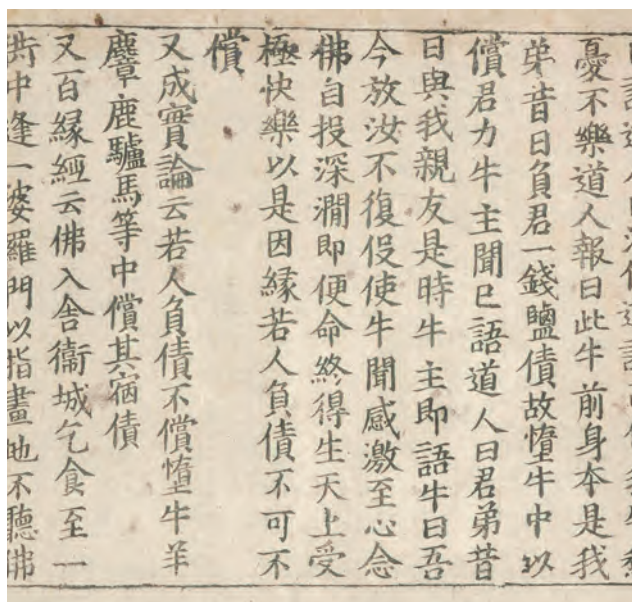 憂不樂道人報曰此牛前身本是我
弟昔日負君一錢鹽債故墮牛中以
償君力牛主聞已語道人曰君弟昔
日與我親友是時牛主即語牛曰吾
今放汝不復伇使牛聞感激至心念
佛自投深澗即便命終得生天上受
極快樂以是因緣若人負債不可不
償
又成實論云若人負債不償墮牛羊
麞鹿驢馬等中償其宿債
又百緣經云佛入舍衞城乞食至一
街中逢一婆羅門以指畫地不聽佛